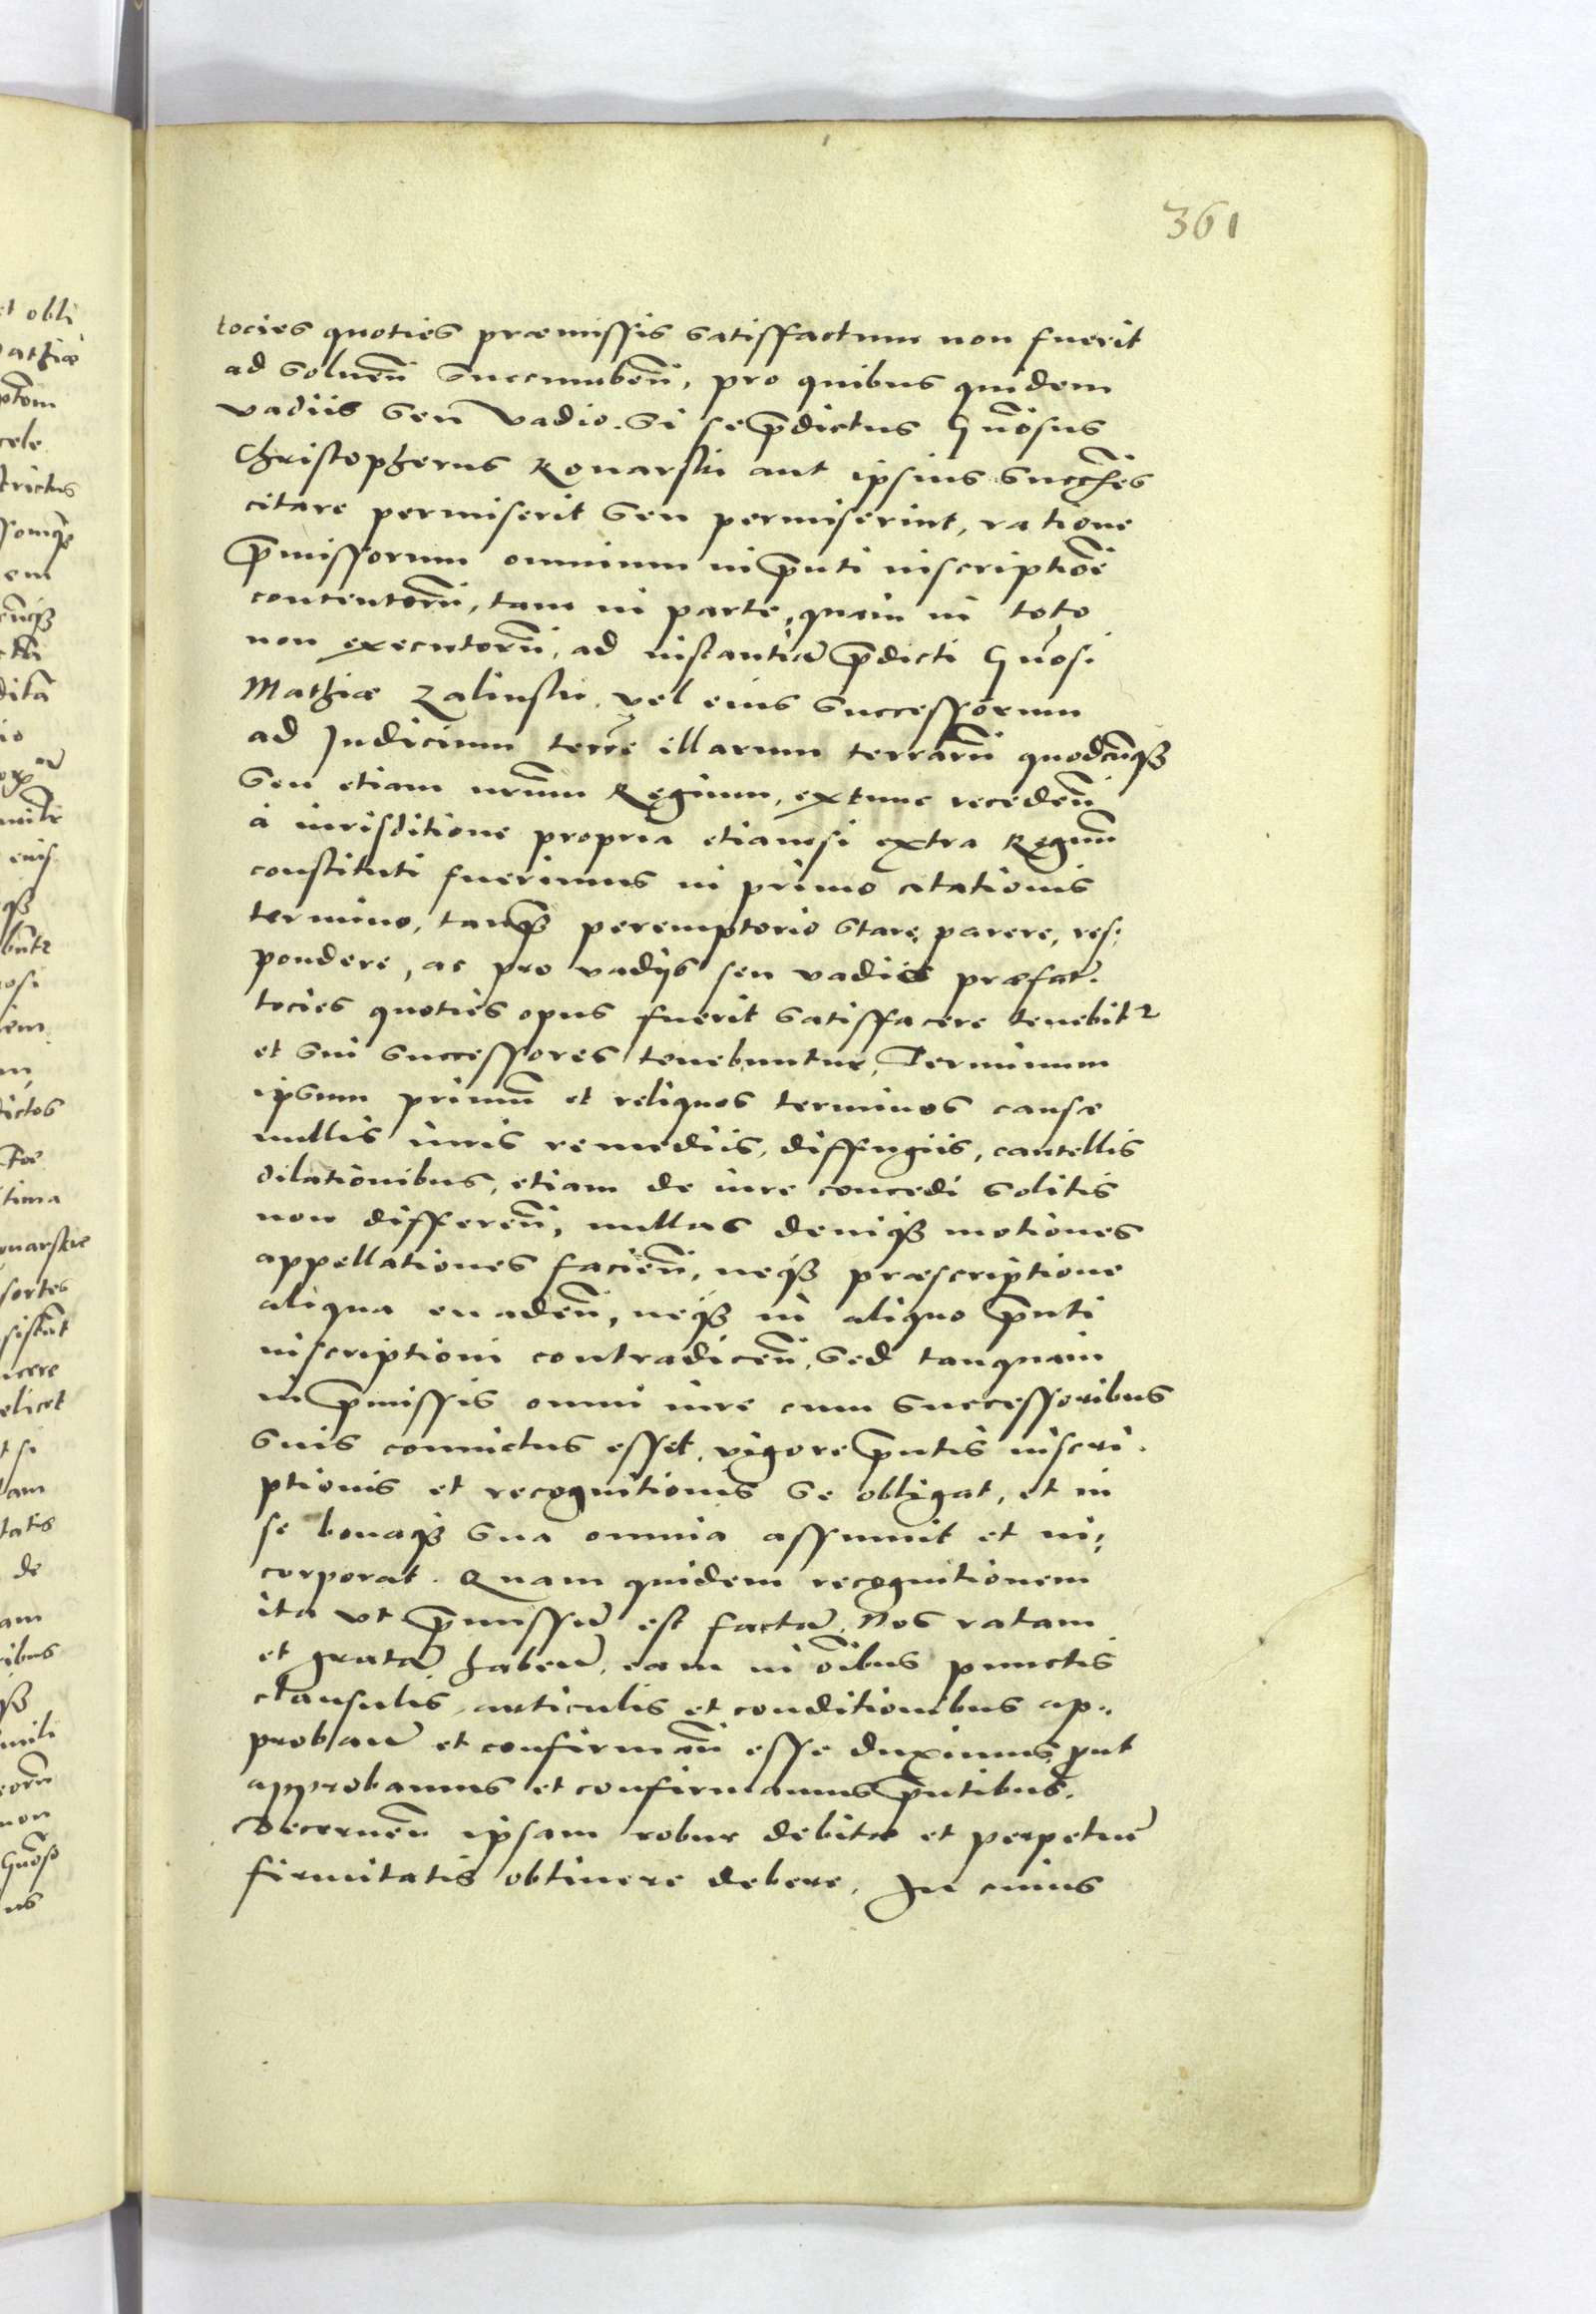 361
tocies quoties præmissis satisfactum non fuerit
ad soluen̄ succumben̄, pro quibus quidem
vadiis seu vadio. si sep̄dictus Gn̄osus
Christopherus Konarski aut ipsius succ̄res
citare permiserit seu permiserint, ratione
p̄missorum omnium in p̄nti inscriptiōe
contentorū, tam in parte, quam in toto
non executorū, ad instantiā p̄dicti Gn̄osi
Mathiæ Zalinski, vel eius successorum
ad Judicium terr̄e illarum terrarū quodcūqȝ
seu etiam nr̄um Regium, extunc receden̄
à iurisditione propria etiamsi extra Regnū
constituti fuerimus in primo citationis
termino, tanqȝ peremptorio stare, parere, res:
pondere, ac pro vadijs seu vadiis præfat̄.
tocies quoties opus fuerit satisfacere tenebit᷑
et sui successores tenebuntur, Terminum
ipsum primū et reliquos terminos causæ
nullis iuris remediis, diffugiis, cautellis
dilationibus, etiam de iure concedi solitis
non differen̄, nullas deniqȝ motiones
appellationes facien̄, neqȝ præscriptione
aliqua euaden̄, neqȝ in aliquo p̄nti
inscriptioni contradicen̄, sed tanquam
in p̄missis omni iure cum successoribus
suis conuictus esset, vigore p̄ntis inscri.
ptionis et recognitionis se obligat, et in
se bonaqȝ sua omnia assumit et in:
corporat. Quam quidem recognitionem
ita vt p̄missū est factā, Nos ratam
et gratā haben̄, eam in oībus punctis
clausulis, articulis et conditionibus ap:
proban̄ et confirman̄ esse duximus, put
approbamus et confirmamus p̄ntibus.
Decernen̄ ipsam robur debitæ et perpetuæ
firmitatis obtinere debere. In cuius